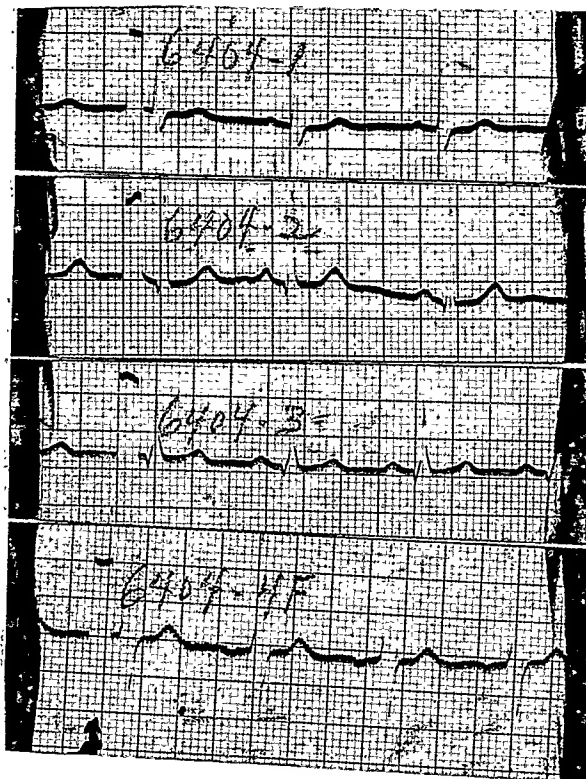 6404-1
6404-2
6404-3
6404-4F